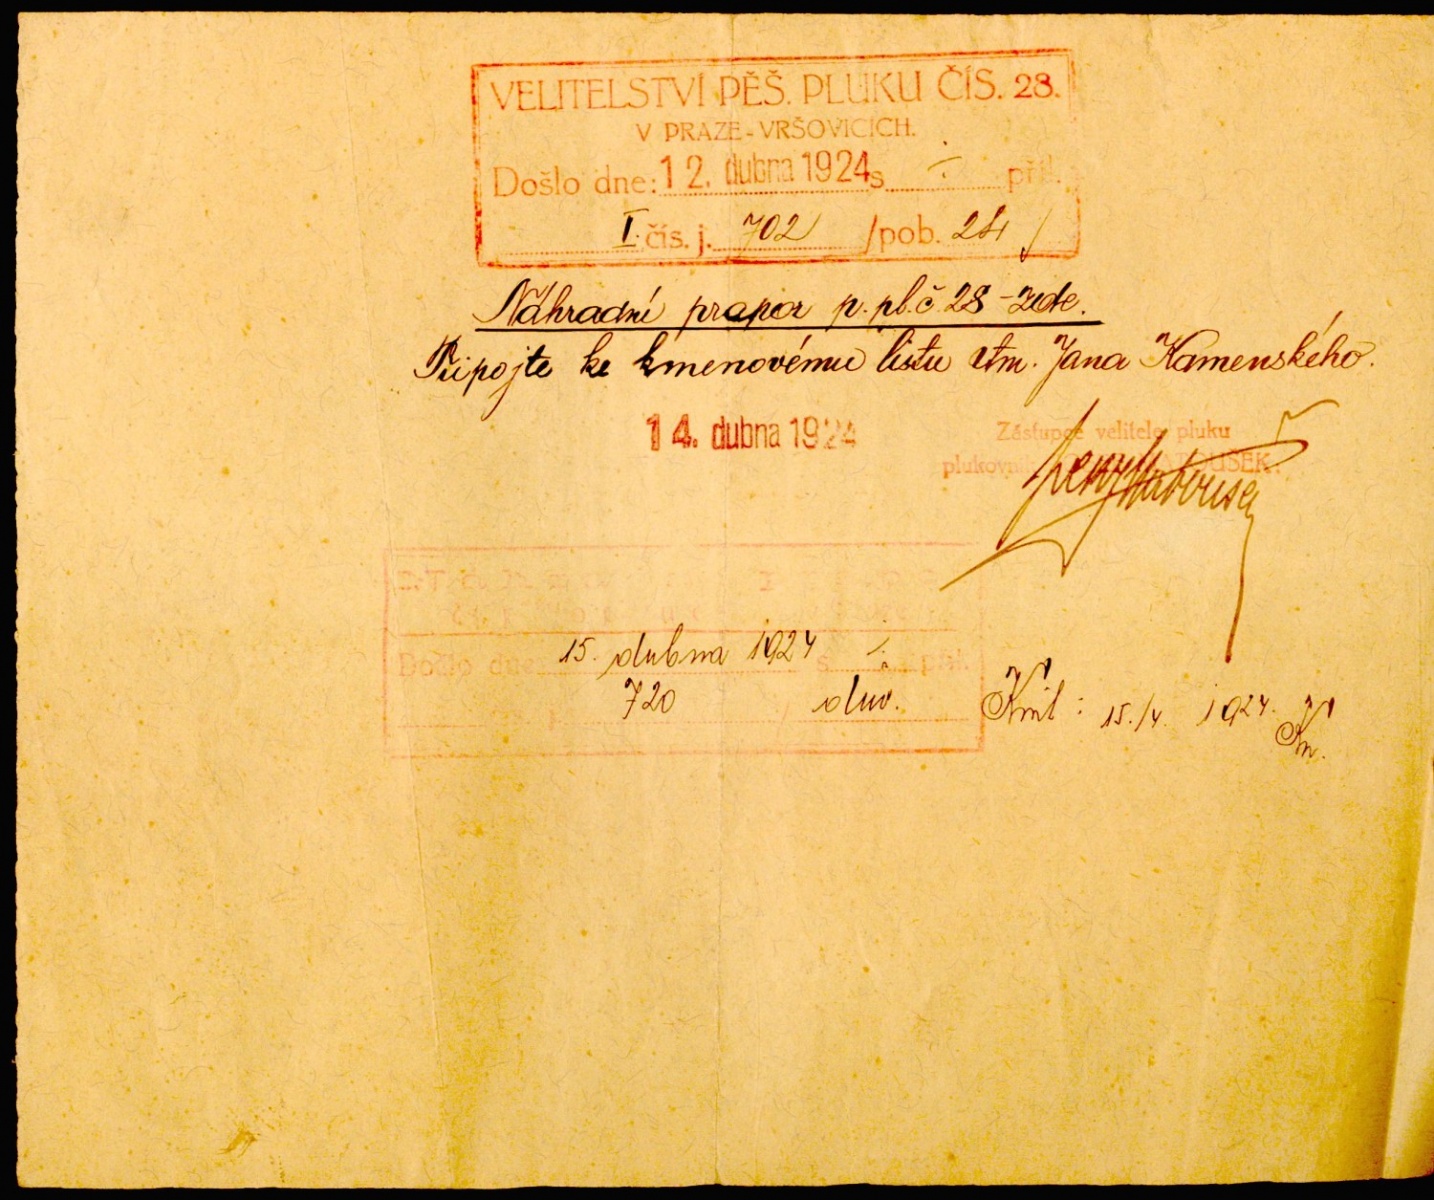 VELITELSTVÍ PĚŠ. PLUKU ČÍS. 28.
V PRAZE-VRŠOVICÍCH.
Došlo dne: 12. dubna 1924 s ÷ příl.
I. čís. j. 702 /pob. 24 /
Náhradní prapor p. pl. č. 28 - zde.
Připojte ke kmenovému listu Jana Kamenského.
14. dubna 1924
Zástupce velitele pluku
plukovník MATOUŠEK.
Došlo dne: 15. dubna 1924 s ÷ příl.
720 dův.
15./4. 1924.